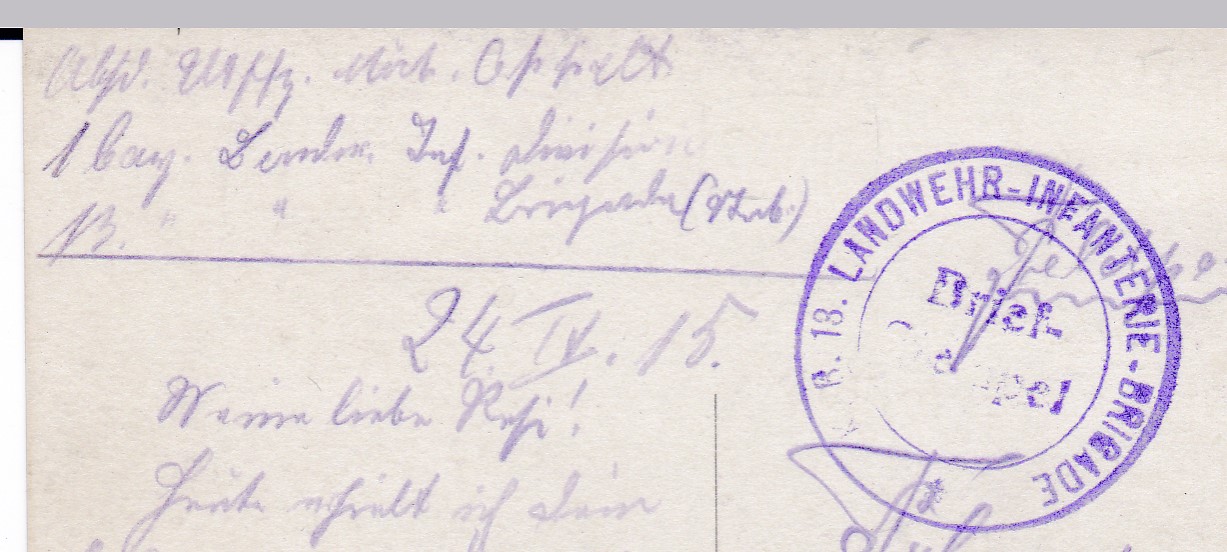 Absd. Uffz. Mich.
1 bay. Landw. Inf. Division
13. " " " Brigade (Stab.)
24 IV. 15.
Meine liebe Resi!
Heute erhielt ich Dein
R. 13. LANDWEHR-INFANTERIE-BRIGADE
Brief-